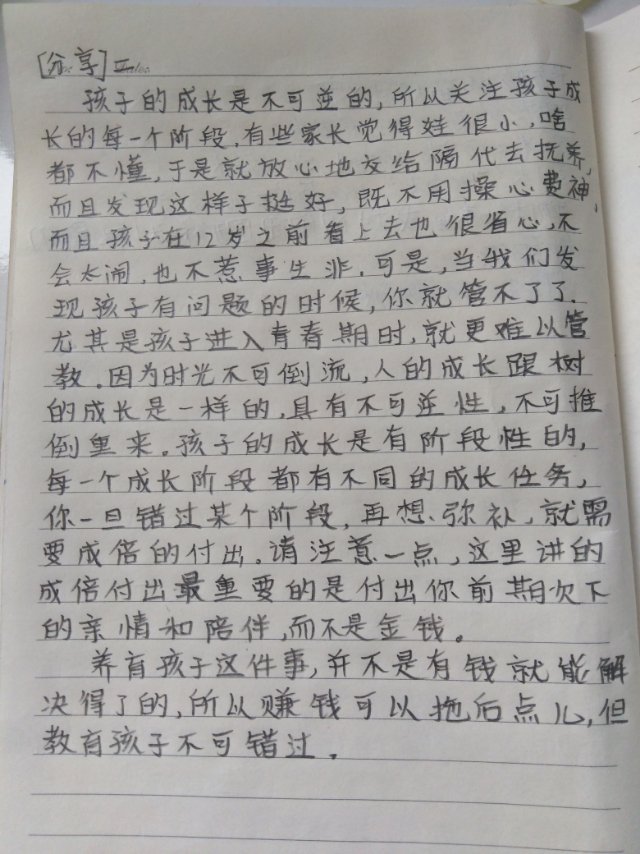 [分享]二
孩子的成长是不可逆的,所以关注孩子成
长的每一个阶段,有些家长觉得娃很小,啥
都不懂,于是就放心地交给隔代去抚养,
而且发现这样子挺好,既不用操心费神,
而且孩子在12岁之前看上去也很省心,不
会太闹,也不惹事生非,可是,当我们发
现孩子有问题的时候,你就管不了了.
尤其是孩子进入青春期时,就更难以管
教。因为时光不可倒流,人的成长跟树
的成长是一样的,具有不可逆性,不可推
倒重来。孩子的成长是有阶段性的,
每一个成长阶段都有不同的成长任务,
你一旦错过某个阶段,再想弥补,就需
要成倍的付出。请注意一点,这里讲的
成倍付出最重要的是付出你前期欠下
的亲情和陪伴,而不是金钱。
养育孩子这件事,并不是有钱就能解
决得了的,所以赚钱可以拖后点儿,但
教育孩子不可错过.